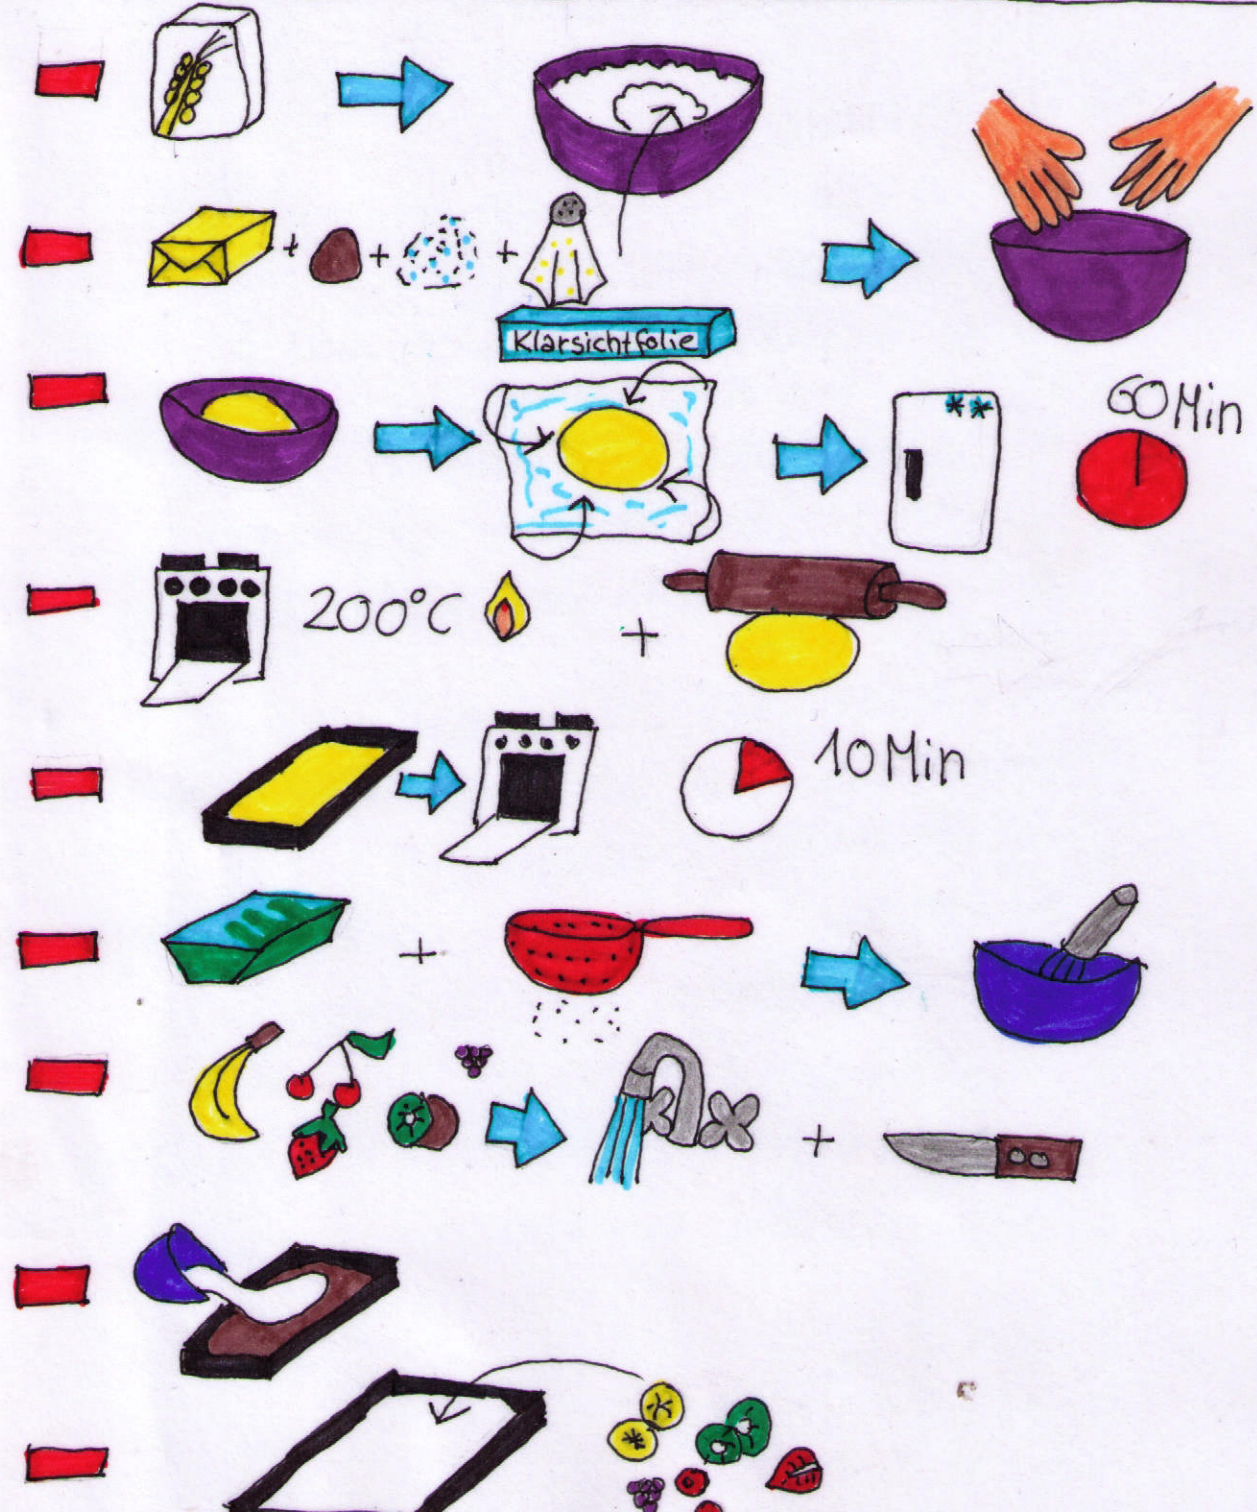 Klarsichtfolie
60 Min
200°C
10 Min